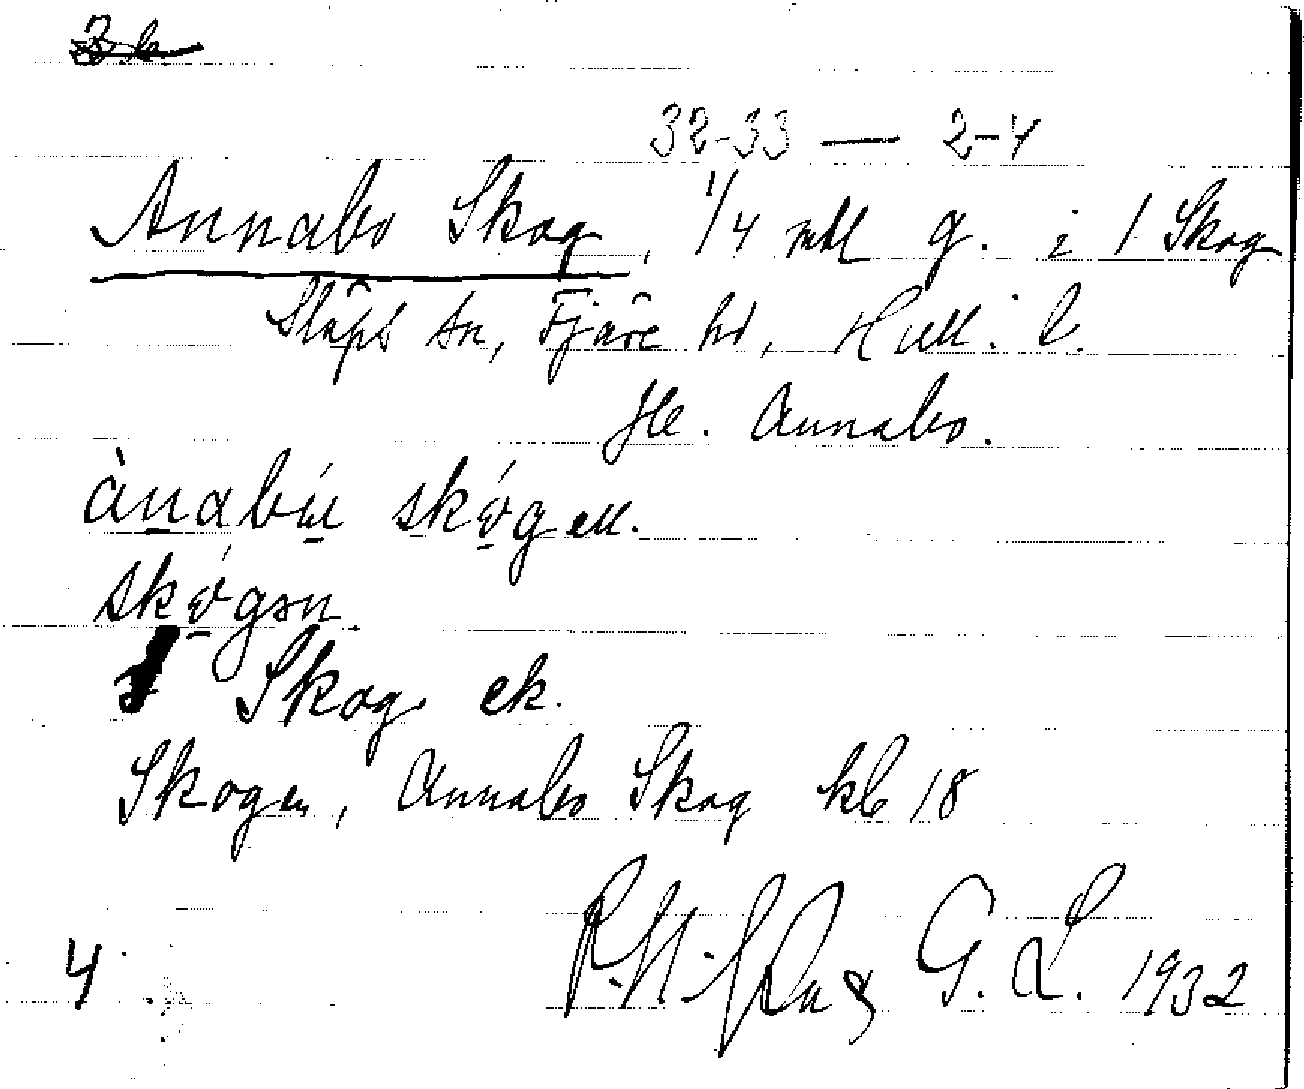 32-33 — 2-4
Annabo Skog, 1/4 mtl g. i 1 Skog
Släps sn, Fjäre hd, Hall. l.
Jfr. Annabo.
ànabú skóg ell.
skógən.
Skog ek.
Skogen, Annabo Skog kb 18
G. L. 1932
4